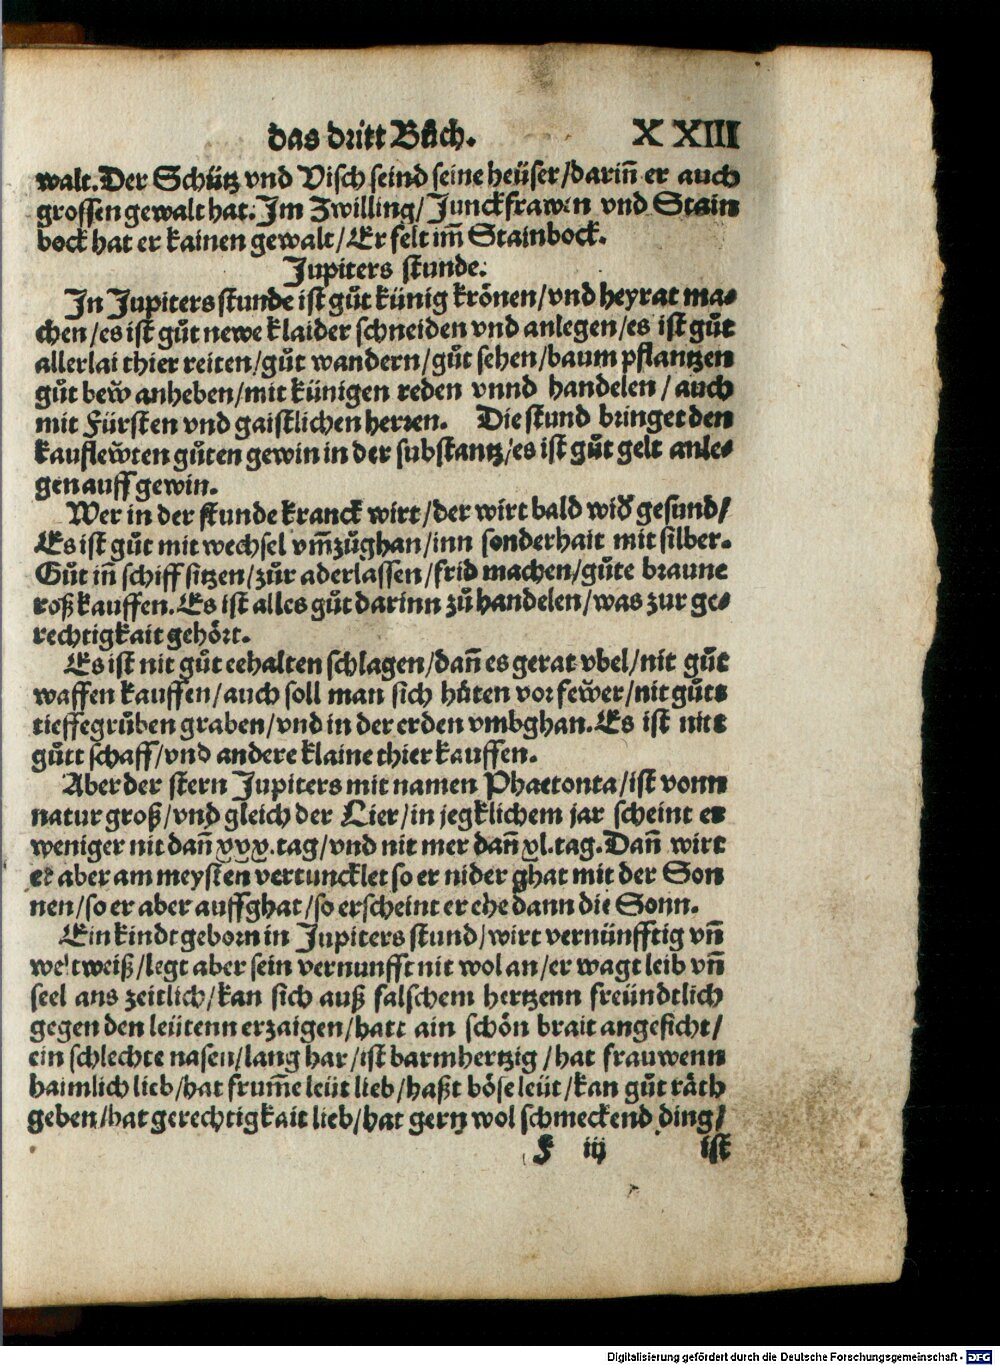 das dritt Bůch. XXIII
walt. Der Schütz vnd Visch seind seine heüser/darin̄ er auch
grossen gewalt hat. Im Zwilling/Junckfrawen vnd Stain
bock hat er kainen gewalt/Er felt im̄ Stainbock.
Jupiters stunde.
In Jupiters stunde ist gůt künig krönen/vnd heyrat ma⸗
chen/es ist gůt newe klaider schneiden vnd anlegen/es ist gůt
allerlai thier reiten/gůt wandern/gůt sehen/baum pflantzen
gůt bew̌ anheben/mit künigen reden vnnd handelen/auch
mit Fürsten vnd gaistlichen herren. Die stund bringet den
kauflew̌ten gůten gewin in der substantz/es ist gůt gelt anle⸗
gen auff gewin.
Wer in der stunde kranck wirt/der wirt bald wiď gesund/
Es ist gůt mit wechsel vm̄zůghan/inn sonderhait mit silber.
Gůt in̄ schiff sitzen/zůr aderlassen/frid machen/gůte braune
roß kauffen. Es ist alles gůt darinn zů handelen/was zur ge⸗
rechtigkait gehört.
Es ist nit gůt eehalten schlagen/dan̄ es gerat vbel/nit gůt
waffen kauffen/auch soll man sich hůten vor few̌er/nit gůts
tieffe grůben graben/vnd in der erden vmbghan. Es ist nitt
gůtt schaff/vnd andere klaine thier kauffen.
Aber der stern Jupiters mit namen Phaetonta/ist vonn
natur groß/vnd gleich der Lier/in jegklichem jar scheint er
weniger nit dan̄ xxx. tag/vnd nit mer dan̄ xl. tag. Dan̄ wirt
er aber am meysten vertuncklet so er nider ghat mit der Son
nen/so er aber auffghat/so erscheint er ehe dann die Sonn.
Ein kindt geborn in Jupiters stund/wirt vernünfftig vn̄
weltweiß/legt aber sein vernunfft nit wol an/er wagt leib vn̄
seel ans zeitlich/kan sich auß falschem hertzenn freündtlich
gegen den leütenn erzaigen/hatt ain schön brait angesicht/
ein schlechte nasen/lang har/ist barmhertzig/hat frauwenn
haimlich lieb/hat frum̄e leüt lieb/haßt böse leüt/kan gůt räth
geben/hat gerechtigkait lieb/hat gern wol schmeckend ding/
F iij ist
Digitalisierung gefördert durch die Deutsche Forschungsgemeinschaft - DFG